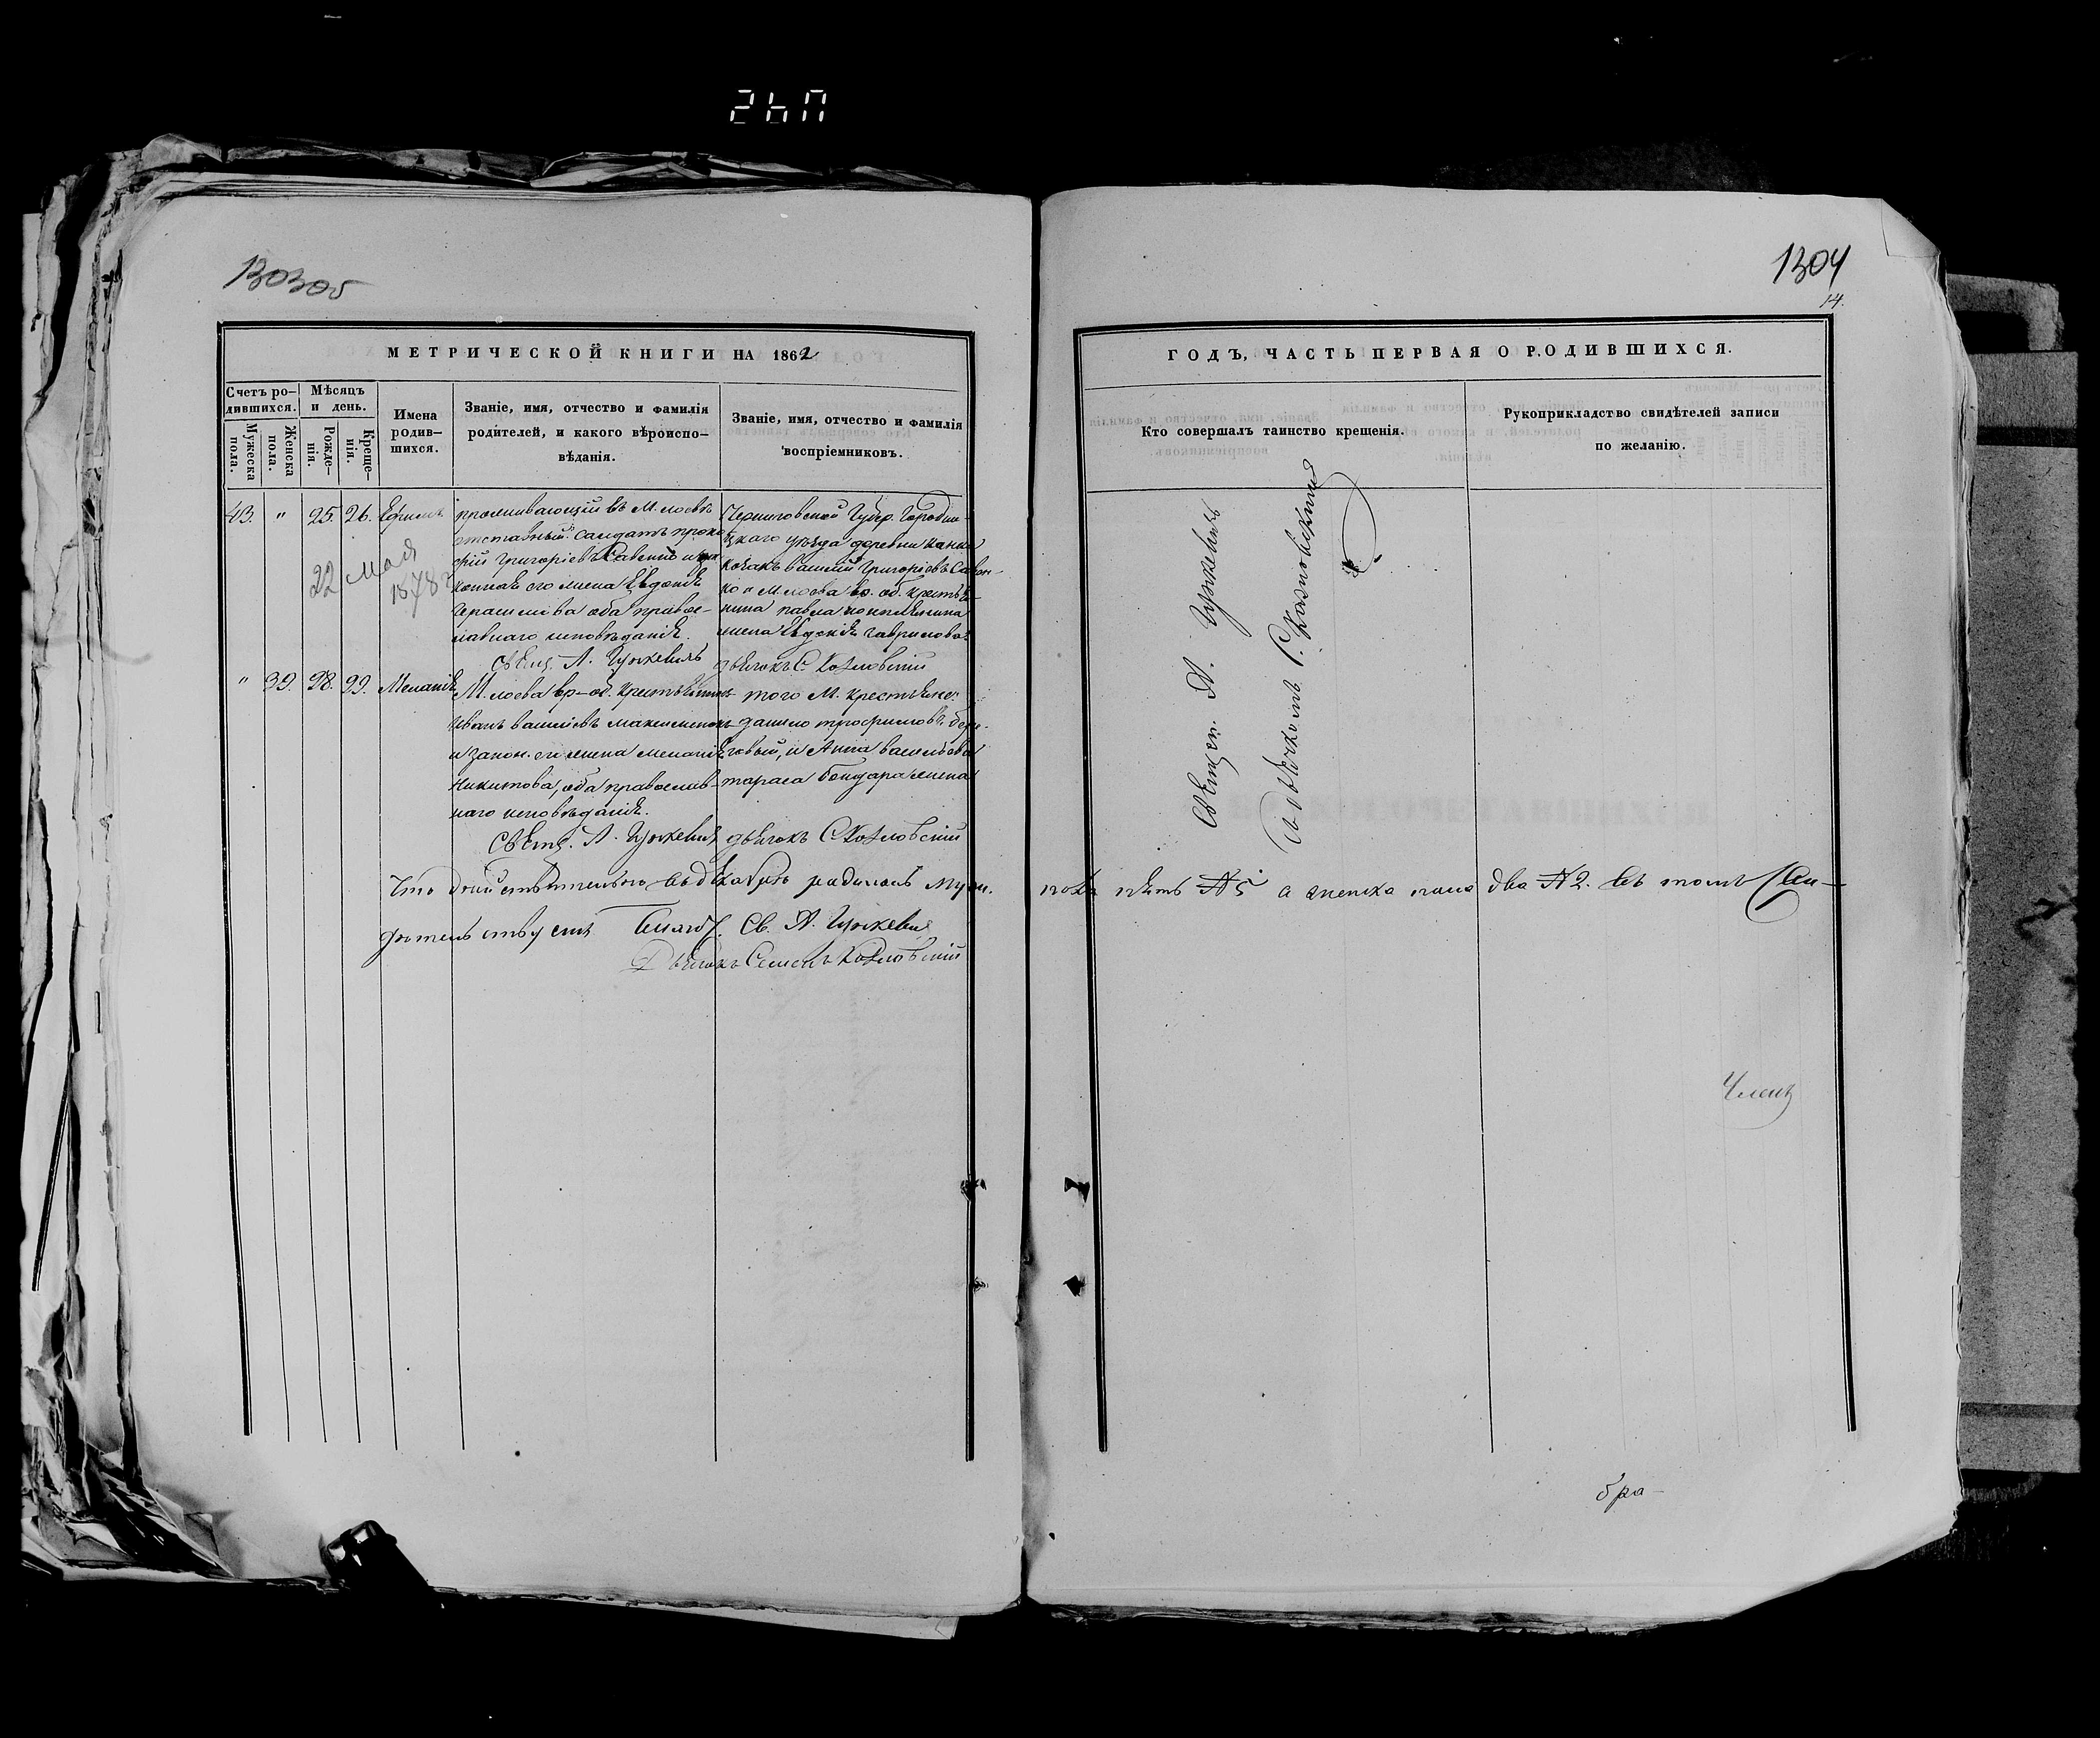 1303об
1304
14.
МЕТРИЧЕСКОЙ КНИГИ НА 1862
ГОДЪ, ЧАСТЬ ПЕРВАЯ О РОДИВШИХСЯ.
Счетъ родившихся.
Мужеска пола.
Женска пола.
Мѣсяцъ и день.
Рожденія.
Крещенія.
Имена родившихся.
Званіе, имя, отчество и фамилія
родителей, и какого вѣроиспо-
вѣданія.
Званіе, имя, отчество и фамилія
воспріемниковъ.
Кто совершалъ таинство крещенія.
Рукоприкладство свидѣтелей записи
по желанію.
43. " 25. 26. Ефимъ
22 Мая
1878 г
проживающій въ М. Млоевъ
отставный солдатъ проко
фій Григоріевъ Савенко и за
конная его жена Евдокія
Герасимова оба правос-
лавнаго исповѣданія.
Черниговской Губер. Городни-
цкаго уѣзда деревни
козакъ василій Григоріевъ Савен-
ко и М. Млоева вр. об. крестья-
нина павла
жена Евдокія гаврилова
Свящ. А. Гуркевичъ дьячокъ С. Козловскій
" 39. 28. 29. Меланія
М. Млоева вр-об. крестьянинъ
Иванъ васильевъ максименко
и закон. его жена меланія
Никитова, оба православ-
наго исповѣданія.
того М. крестьяне:
данило трофимовъ
и Анна васильева
тараса бондара жена
Свящ. А. Гуркевичъ дьячокъ С. Козловскій
Что дѣйствительно въ декабрѣ родилось муж.
пола пять № 5 а женска пола два № 2. въ томъ сви-
дѣтельствуемъ Св. А. Гуркевичъ
Дьячокъ Семенъ Козловскій
Священ. А. Гуркевичъ
съ дьячкомъ С. Козловскимъ
Членъ
бра-